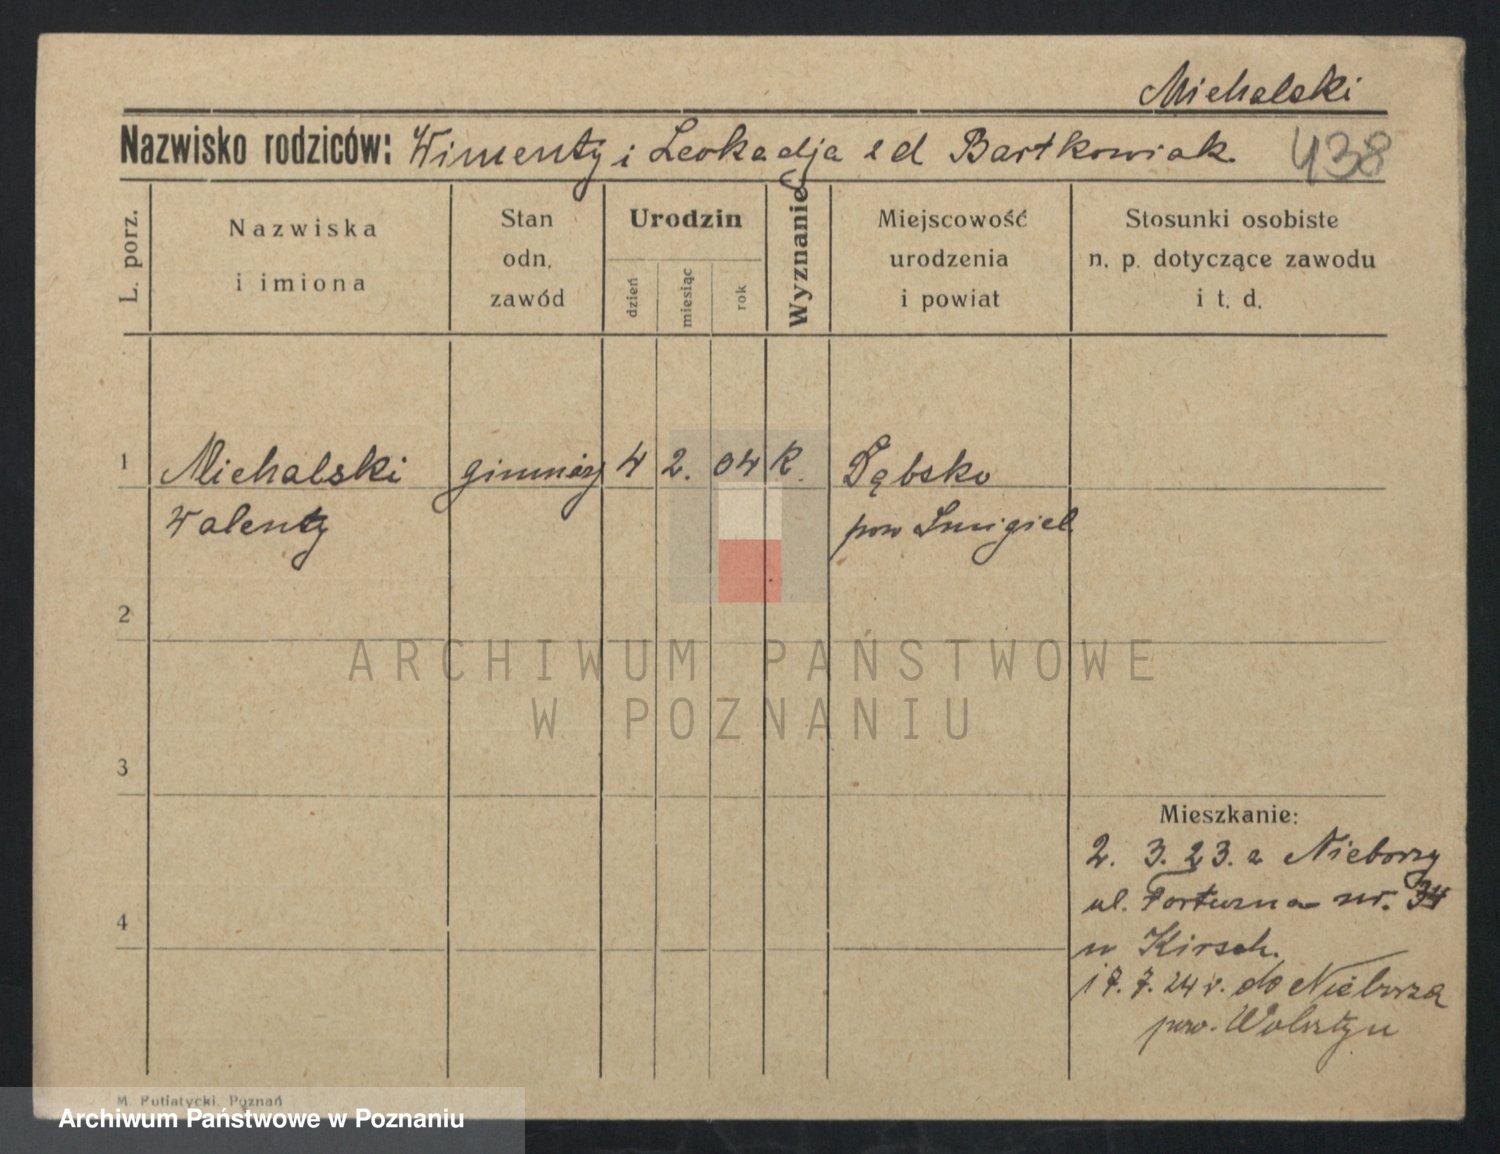 Michalski
Nazwisko rodziców: Wincenty i Leokadja z d Bartkowiak.
438
L. porz.
Nazwiska
i imiona
Stan
odn.
zawód
Urodzin
dzień
miesiąc
rok
Wyznanie
Miejscowość
urodzenia
i powiat
Stosunki osobiste
n. p. dotyczące zawodu
i t. d.
1 Michalski gimnazj 4 2. 04 K. Dąbsko
Walenty pow Śmigiel.
2
ARCHIWUM PAŃSTWOWE
W POZNANIU
3
Mieszkanie:
2. 3. 23. z Nieborzy
ul. Fortuzna nr. 34
4
w Kirsch.
17. 7. 24 r. do Nieborza
pow. Wolsztyn
M. Putiatycki, Poznań
Archiwum Państwowe w Poznaniu